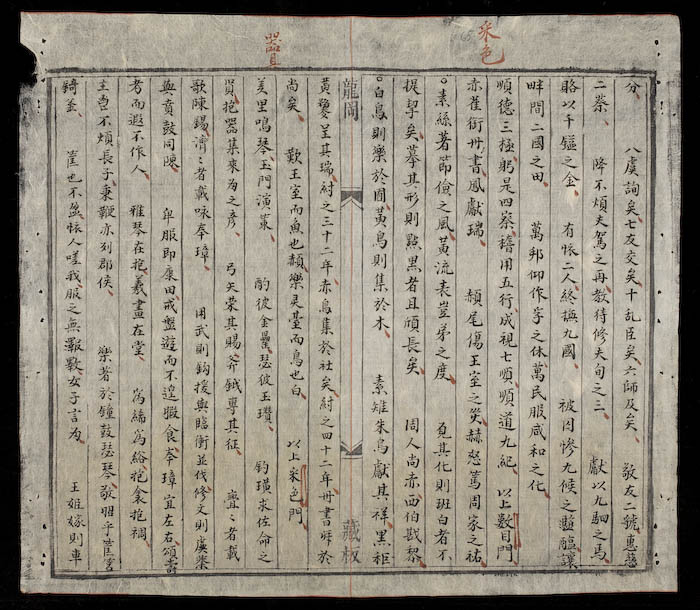 采色
器具
分、八虞詢矣七友交矣十乱臣矣六師及矣、敬友二虢惠慈
二蔡、降不煩夫駕之再教待修夫旬之三、獻以九駟之馬
賂以千鎰之金、有恢二人終撫九國、被因慘九候之醢醢讓
畔間二國之田、萬邦仰作孚之休萬民服咸和之化
順德三極躬是四察稽用五行成視七順順道九紀、以上數目門
赤雀銜丹書鳳獻瑞、赬尾傷王室之災赫怒篤周家之祐
。素絲著節儉之風黃流表豈弟之度、覔其化則班白者不
提挈矣摹其形則黝黑者且頎長矣、周人尚赤西伯戡黎
。白鳥則樂於囿黃鳥則集於木、素雉朱鳥獻其祥黑秬
龍岡
藏板
黃鏐呈其瑞紂之三十二年赤烏集於社矣紂之四十二年丹書降於
尚矣、歎王室而魚也赬樂灵臺而鳥也白、以上采色門
羑里鳴琴玉門演策、酌彼金罍瑟彼玉瓚、釣璜求佐命之
賢抱器集來為之彦、弓矢荣其賜斧鉞專其征、亹亹者載
歌陳錫濟濟者載咏奉璋、用武則鈎援與臨衝並伐修文則虡業
與賁鼓同陳、卑服即康田戒盤遊而不遑暇食奉璋宜左右頌壽
考而遐不作人、雅琴在抱羲畫在堂、為絺為綌抱衾抱裯、
主鬯不煩長子秉鞭亦列郡侯、樂著於鐘鼓瑟琴敬昭乎筐筥
錡釜、筐也不盈恢人嗟我服之無斁歎女子言為、王姬嫁則車